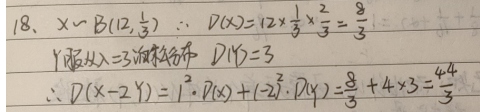 18、X～B(12,1/3) ∴ D(X)=12×1/3×2/3=8/3
Y服从λ=3泊松分布 D(Y)=3
∴D(X-2Y)=1²·D(X)+(-2)²·D(Y)=8/3+4×3=44/3